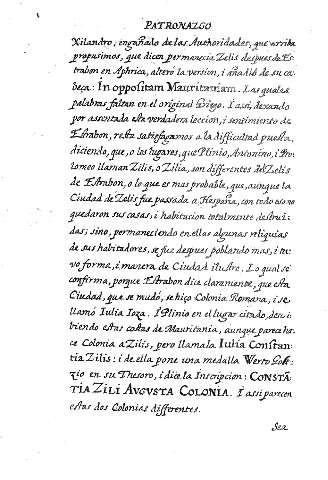 PATRONAZGO
Xilandro, engañado de las Authoridades, que arriba
propusimos, que dicen permanecia Zelis despues de Es-
trabon en Aphrica, altero la version, i añadio de su ca-
beça: In oppositam Mauritaniam. Las quales
palabras faltan en el original Griego. I assi, dexando
por assentada esta verdadera leccion, i sentimiento de
Estrabon, resta satisfagamos a la difficultad puesta,
diciendo, que, o las lugares, que Plinio, Antonino, i Pto-
lomeo llaman Zilis, o Zilia, son differentes del Zelis
de Estrabon, o lo que es mas probable, que, aunque la
Ciudad de Zelis fue passada a Hespaña, con todo esso no
quedaron sus casas, i habitacion totalmente destrui-
das; sino, permaneciendo en ellas algunas reliquias
de sus habitadores, se fue despues poblando mas, i tu-
vo forma, i manera de Ciudad ilustre. Lo qual se
confirma, porque Estrabon dice claramente, que esta
Ciudad, que se mudó, se hiço Colonia Romana, i se
llamó Iulia Ioza. I Plinio en el lugar citado, descri-
biendo estas costas de Mauritania, aunque parece ha-
ce Colonia a Zilis, pero llamala Iulia Constan-
tia Zilis: i de ella pone una medalla Werto Golt-
zio en su Thesoro, i dice la Inscripcion: CONSTĀ
TIA ZILI AVGVSTA COLONIA. I assi parecen
estas dos Colonias differentes.
Sea